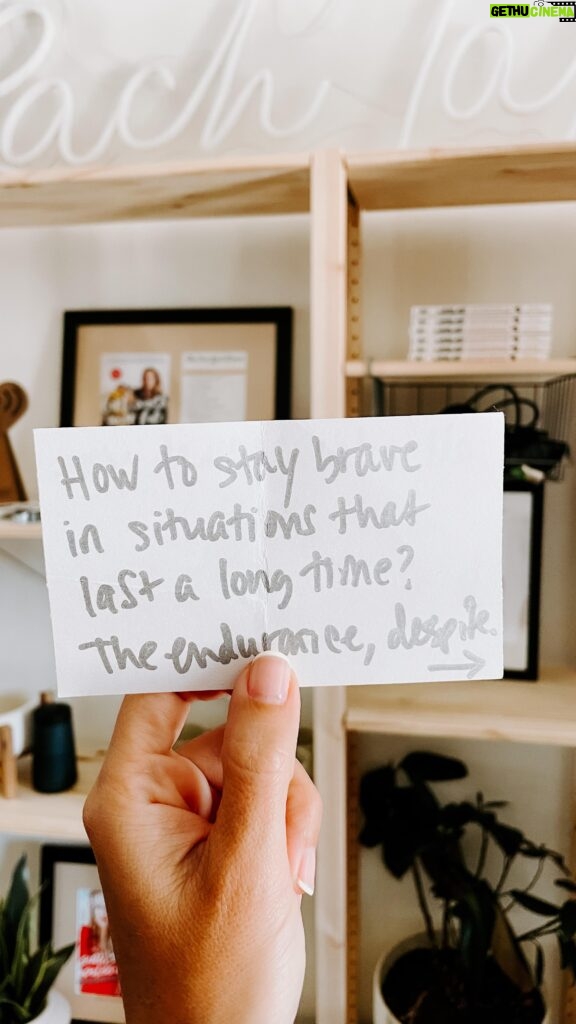 GETHUCINEMA
each
How to stay brave
in situations that
last a long time?
The endurance, despite.